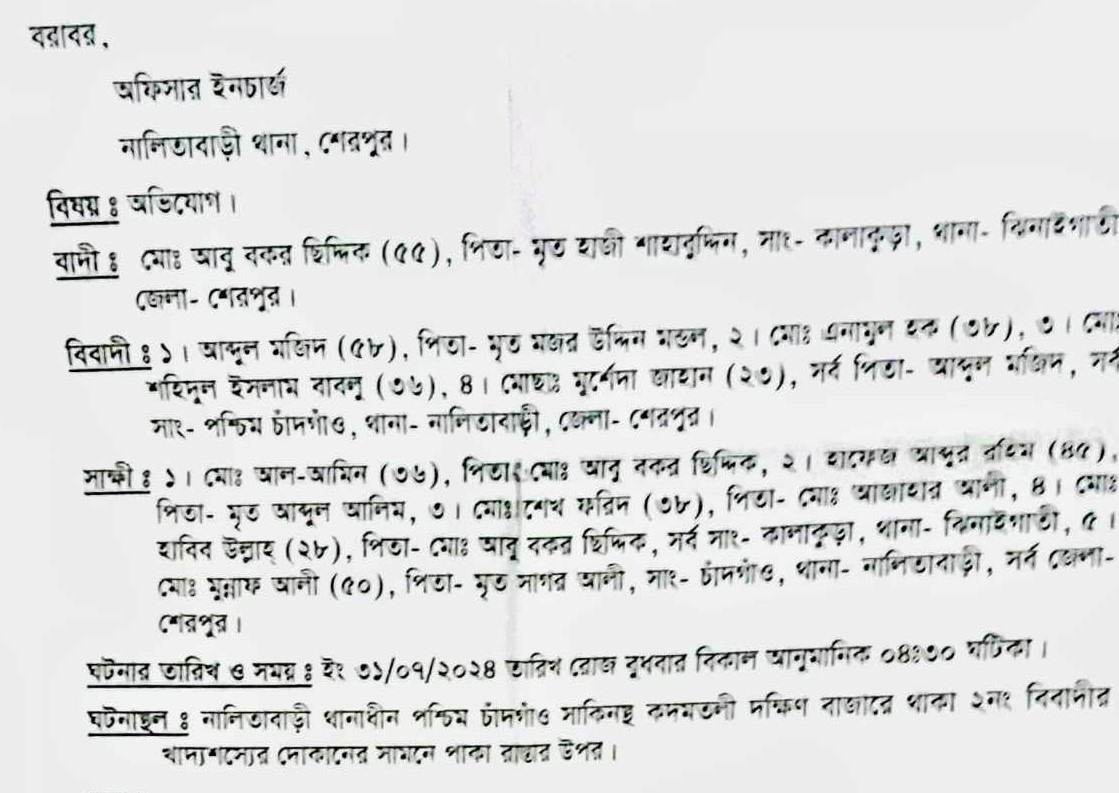 বরাবর,
অফিসার ইনচার্জ
নালিতাবাড়ী থানা, শেরপুর।
বিষয় ঃ অভিযোগ।
বাদী ঃ মোঃ আবু বকর ছিদ্দিক (৫৫), পিতা- মৃত হাজী শাহাবুদ্দিন, সাং- কালাকুড়া, থানা- ঝিনাইগাতী
জেলা- শেরপুর।
বিবাদী ঃ ১। আব্দুল মজিদ (৫৮), পিতা- মৃত মজর উদ্দিন মন্ডল, ২। মোঃ এনামুল হক (৩৮), ৩। মোঃ
শহিদুল ইসলাম বাবলু (৩৬), ৪। মোছাঃ মুর্শেদা জাহান (২৩), সর্ব পিতা- আব্দুল মজিদ, সর্ব
সাং- পশ্চিম চাঁদগাঁও, থানা- নালিতাবাড়ী, জেলা- শেরপুর।
সাক্ষী ঃ ১। মোঃ আল-আমিন (৩৬), পিতাঃ মোঃ আবু বকর ছিদ্দিক, ২। হাফেজ আব্দুর রহিম (৪৫),
পিতা- মৃত আব্দুল আলিম, ৩। মোঃ শেখ ফরিদ (৩৮), পিতা- মোঃ আজাহার আলী, ৪। মোঃ
হাবিব উল্লাহ (২৮), পিতা- মোঃ আবু বকর ছিদ্দিক, সর্ব সাং- কালাকুড়া, থানা- ঝিনাইগাতী, ৫।
মোঃ মুন্নাফ আলী (৫০), পিতা- মৃত সাগর আলী, সাং- চাঁদগাঁও, থানা- নালিতাবাড়ী, সর্ব জেলা-
শেরপুর।
ঘটনার তারিখ ও সময় ঃ ইং ৩১/০৭/২০২৪ তারিখ রোজ বুধবার বিকাল আনুমানিক ০৪ঃ৩০ ঘটিকা।
ঘটনাস্থল ঃ নালিতাবাড়ী থানাধীন পশ্চিম চাঁদগাঁও সাকিনস্থ কদমতলী দক্ষিণ বাজারে থাকা ২নং বিবাদীর
খাদ্যশস্যের দোকানের সামনে পাকা রাস্তার উপর।